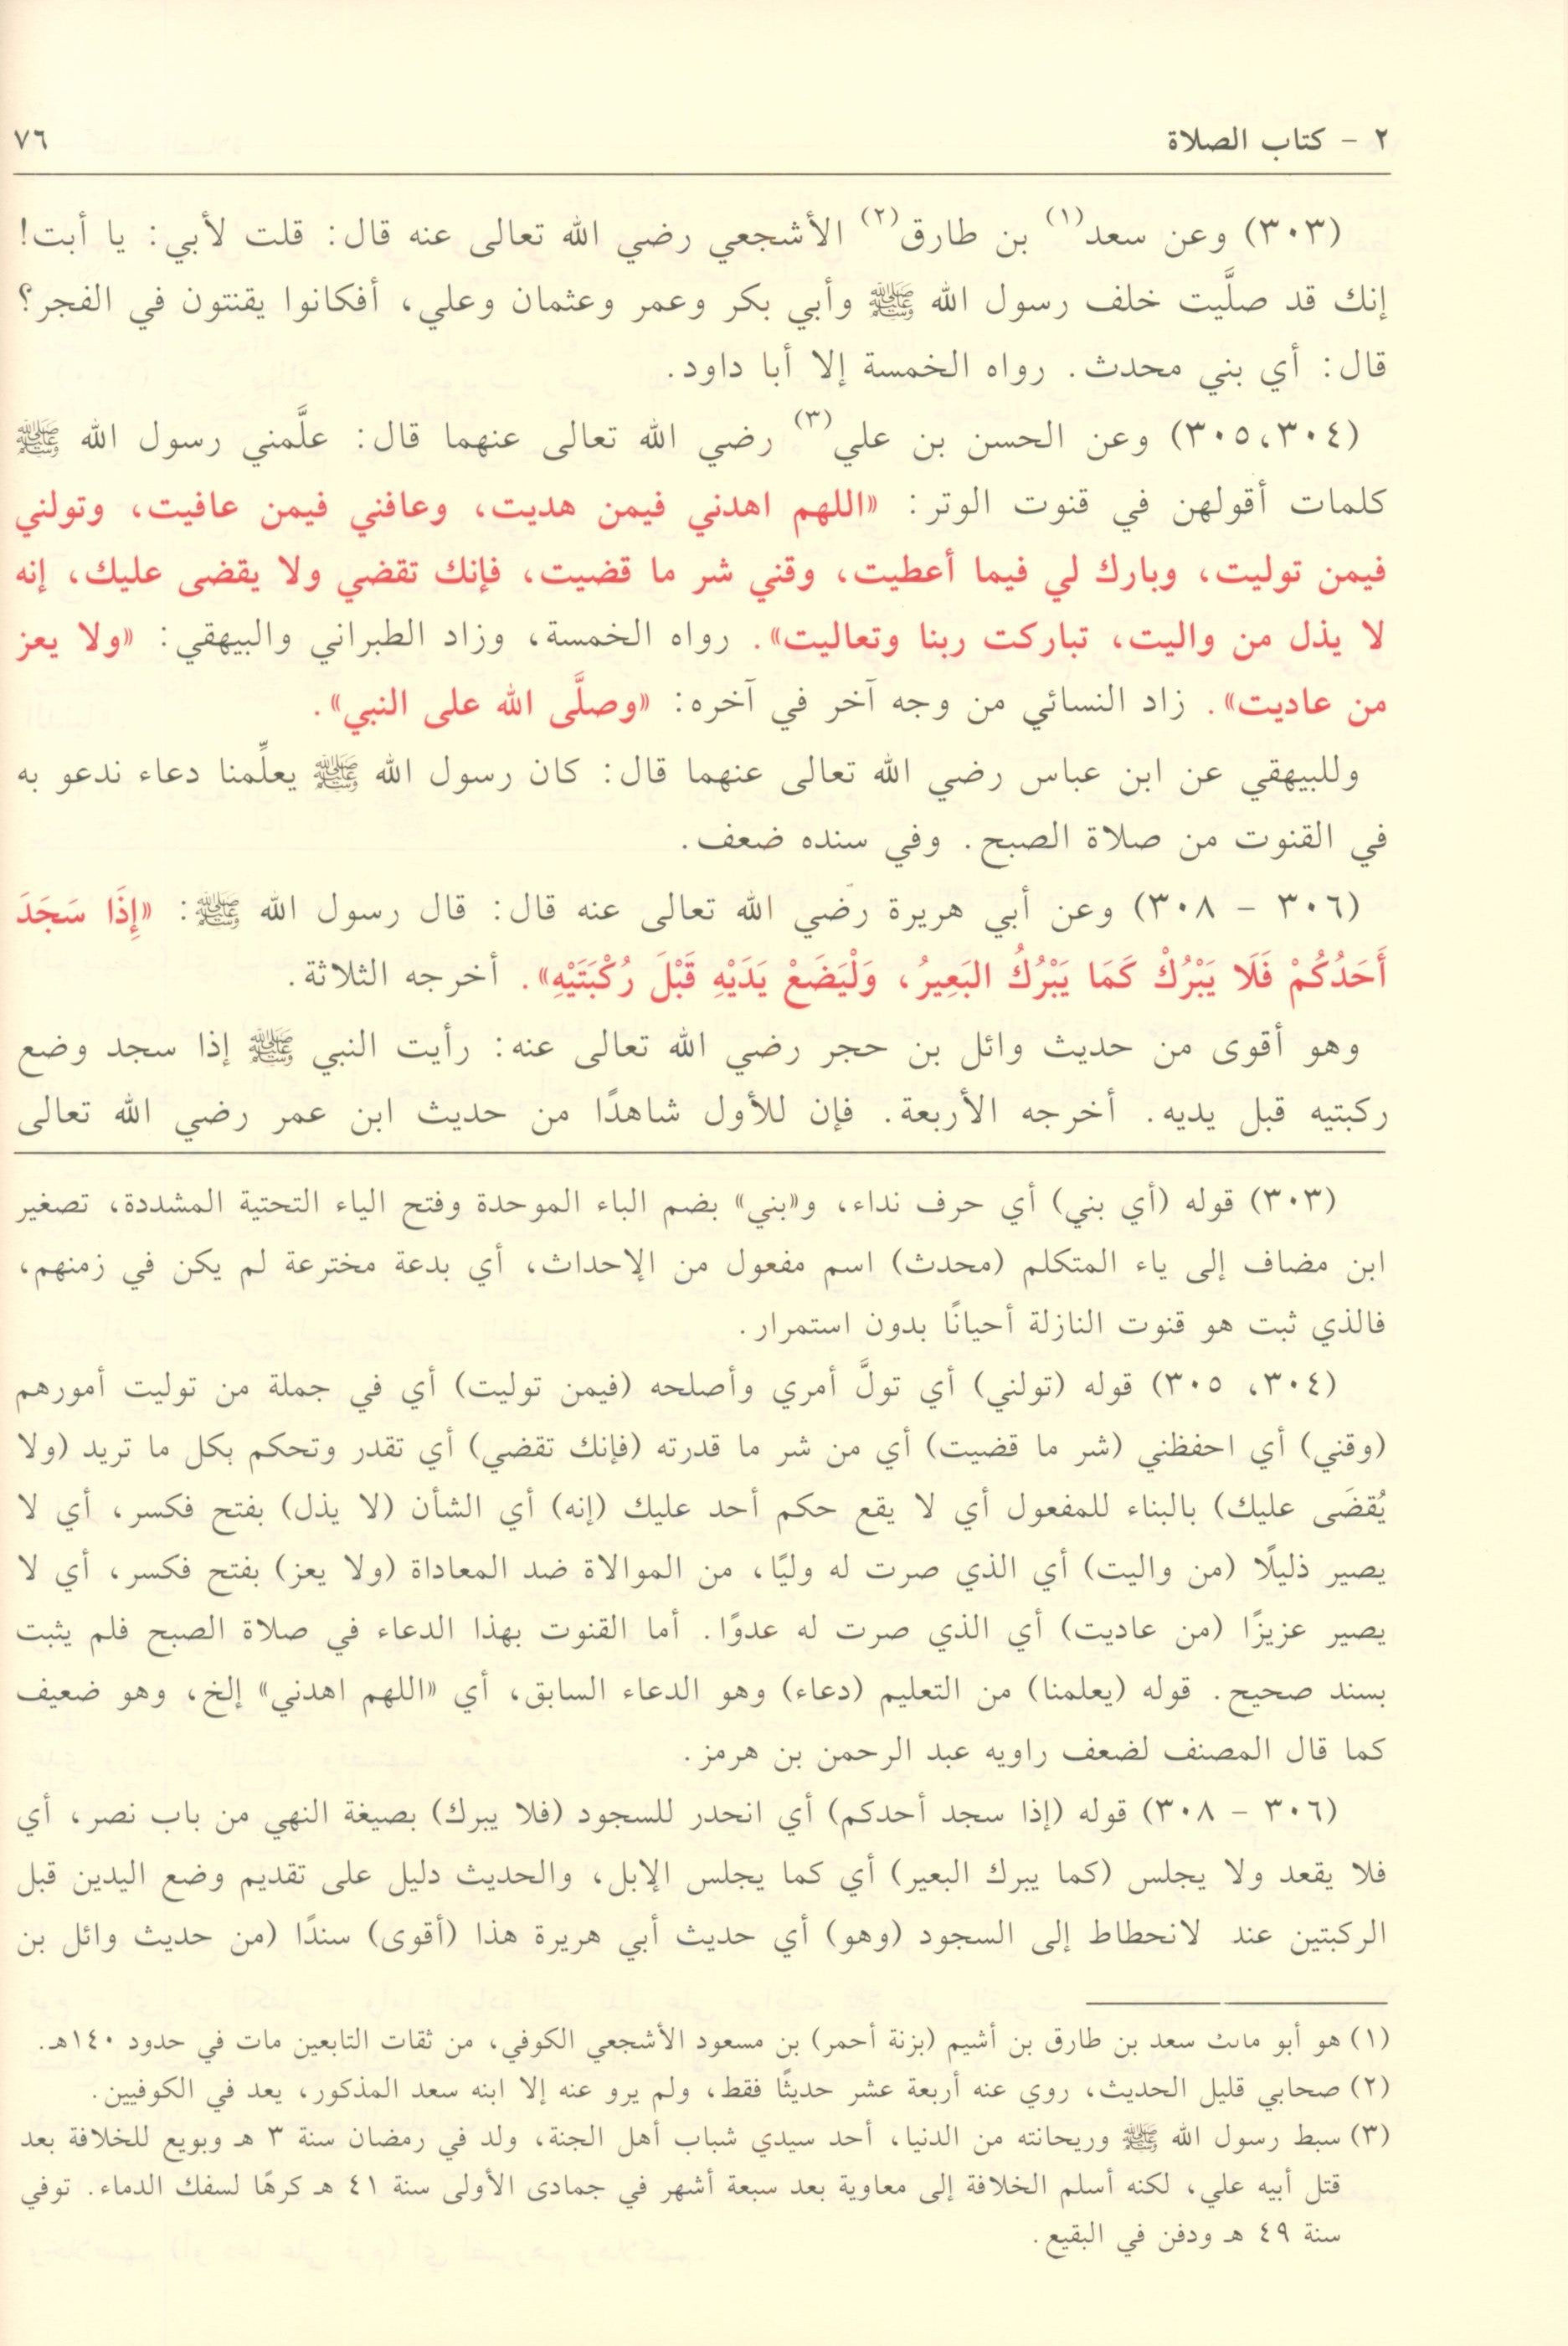 ٢ - كتاب الصلاة ٧٦
(٣٠٣) وعن سعد(١) بن طارق(٢) الأشجعي رضي الله تعالى عنه قال: قلت لأبي: يا أبت!
إنك قد صلَّيت خلف رسول الله ﷺ وأبي بكر وعمر وعثمان وعلي، أفكانوا يقنتون في الفجر؟
قال: أي بني محدث. رواه الخمسة إلا أبا داود.
(٣٠٤،٣٠٥) وعن الحسن بن علي(٣) رضي الله تعالى عنهما قال: علَّمني رسول الله ﷺ
كلمات أقولهن في قنوت الوتر: «اللهم اهدني فيمن هديت، وعافني فيمن عافيت، وتولني
فيمن توليت، وبارك لي فيما أعطيت، وقني شر ما قضيت، فإنك تقضي ولا يقضى عليك، إنه
لا يذل من واليت، تباركت ربنا وتعاليت». رواه الخمسة، وزاد الطبراني والبيهقي: «ولا يعز
من عاديت». زاد النسائي من وجه آخر في آخره: «وصلَّى الله على النبي».
وللبيهقي عن ابن عباس رضي الله تعالى عنهما قال: كان رسول الله ﷺ يعلِّمنا دعاء ندعو به
في القنوت من صلاة الصبح. وفي سنده ضعف.
(٣٠٦ - ٣٠٨) وعن أبي هريرة رضي الله تعالى عنه قال: قال رسول الله ﷺ: «إِذَا سَجَدَ
أَحَدُكُمْ فَلَا يَبْرُكْ كَمَا يَبْرُكُ البَعِيرُ، وَلْيَضَعْ يَدَيْهِ قَبْلَ رُكْبَتَيْهِ». أخرجه الثلاثة.
وهو أقوى من حديث وائل بن حجر رضي الله تعالى عنه: رأيت النبي ﷺ إذا سجد وضع
ركبتيه قبل يديه. أخرجه الأربعة. فإن للأول شاهدًا من حديث ابن عمر رضي الله تعالى
(٣٠٣) قوله (أي بني) أي حرف نداء، و«بني» بضم الباء الموحدة وفتح الياء التحتية المشددة، تصغير
ابن مضاف إلى ياء المتكلم (محدث) اسم مفعول من الإحداث، أي بدعة مخترعة لم يكن في زمنهم،
فالذي ثبت هو قنوت النازلة أحيانًا بدون استمرار.
(٣٠٤، ٣٠٥) قوله (تولني) أي تولَّ أمري وأصلحه (فيمن توليت) أي في جملة من توليت أمورهم
(وقني) أي احفظني (شر ما قضيت) أي من شر ما قدرته (فإنك تقضي) أي تقدر وتحكم بكل ما تريد (ولا
يُقضَى عليك) بالبناء للمفعول أي لا يقع حكم أحد عليك (إنه) أي الشأن (لا يذل) بفتح فكسر، أي لا
يصير ذليلًا (من واليت) أي الذي صرت له وليًا، من الموالاة ضد المعاداة (ولا يعز) بفتح فكسر، أي لا
يصير عزيزًا (من عاديت) أي الذي صرت له عدوًا. أما القنوت بهذا الدعاء في صلاة الصبح فلم يثبت
بسند صحيح. قوله (يعلمنا) من التعليم (دعاء) وهو الدعاء السابق، أي «اللهم اهدني» إلخ، وهو ضعيف
كما قال المصنف لضعف راويه عبد الرحمن بن هرمز.
(٣٠٦ - ٣٠٨) قوله (إذا سجد أحدكم) أي انحدر للسجود (فلا يبرك) بصيغة النهي من باب نصر، أي
فلا يقعد ولا يجلس (كما يبرك البعير) أي كما يجلس الإبل، والحديث دليل على تقديم وضع اليدين قبل
الركبتين عند لانحطاط إلى السجود (وهو) أي حديث أبي هريرة هذا (أقوى) سندًا (من حديث وائل بن
(١) هو أبو مالك سعد بن طارق بن أشيم (بزنة أحمر) بن مسعود الأشجعي الكوفي، من ثقات التابعين مات في حدود ١٤٠هـ.
(٢) صحابي قليل الحديث، روي عنه أربعة عشر حديثًا فقط، ولم يرو عنه إلا ابنه سعد المذكور، يعد في الكوفيين.
(٣) سبط رسول الله ﷺ وريحانته من الدنيا، أحد سيدي شباب أهل الجنة، ولد في رمضان سنة ٣ هـ وبويع للخلافة بعد
قتل أبيه علي، لكنه أسلم الخلافة إلى معاوية بعد سبعة أشهر في جمادى الأولى سنة ٤١ هـ كرهًا لسفك الدماء. توفي
سنة ٤٩ هـ ودفن في البقيع.